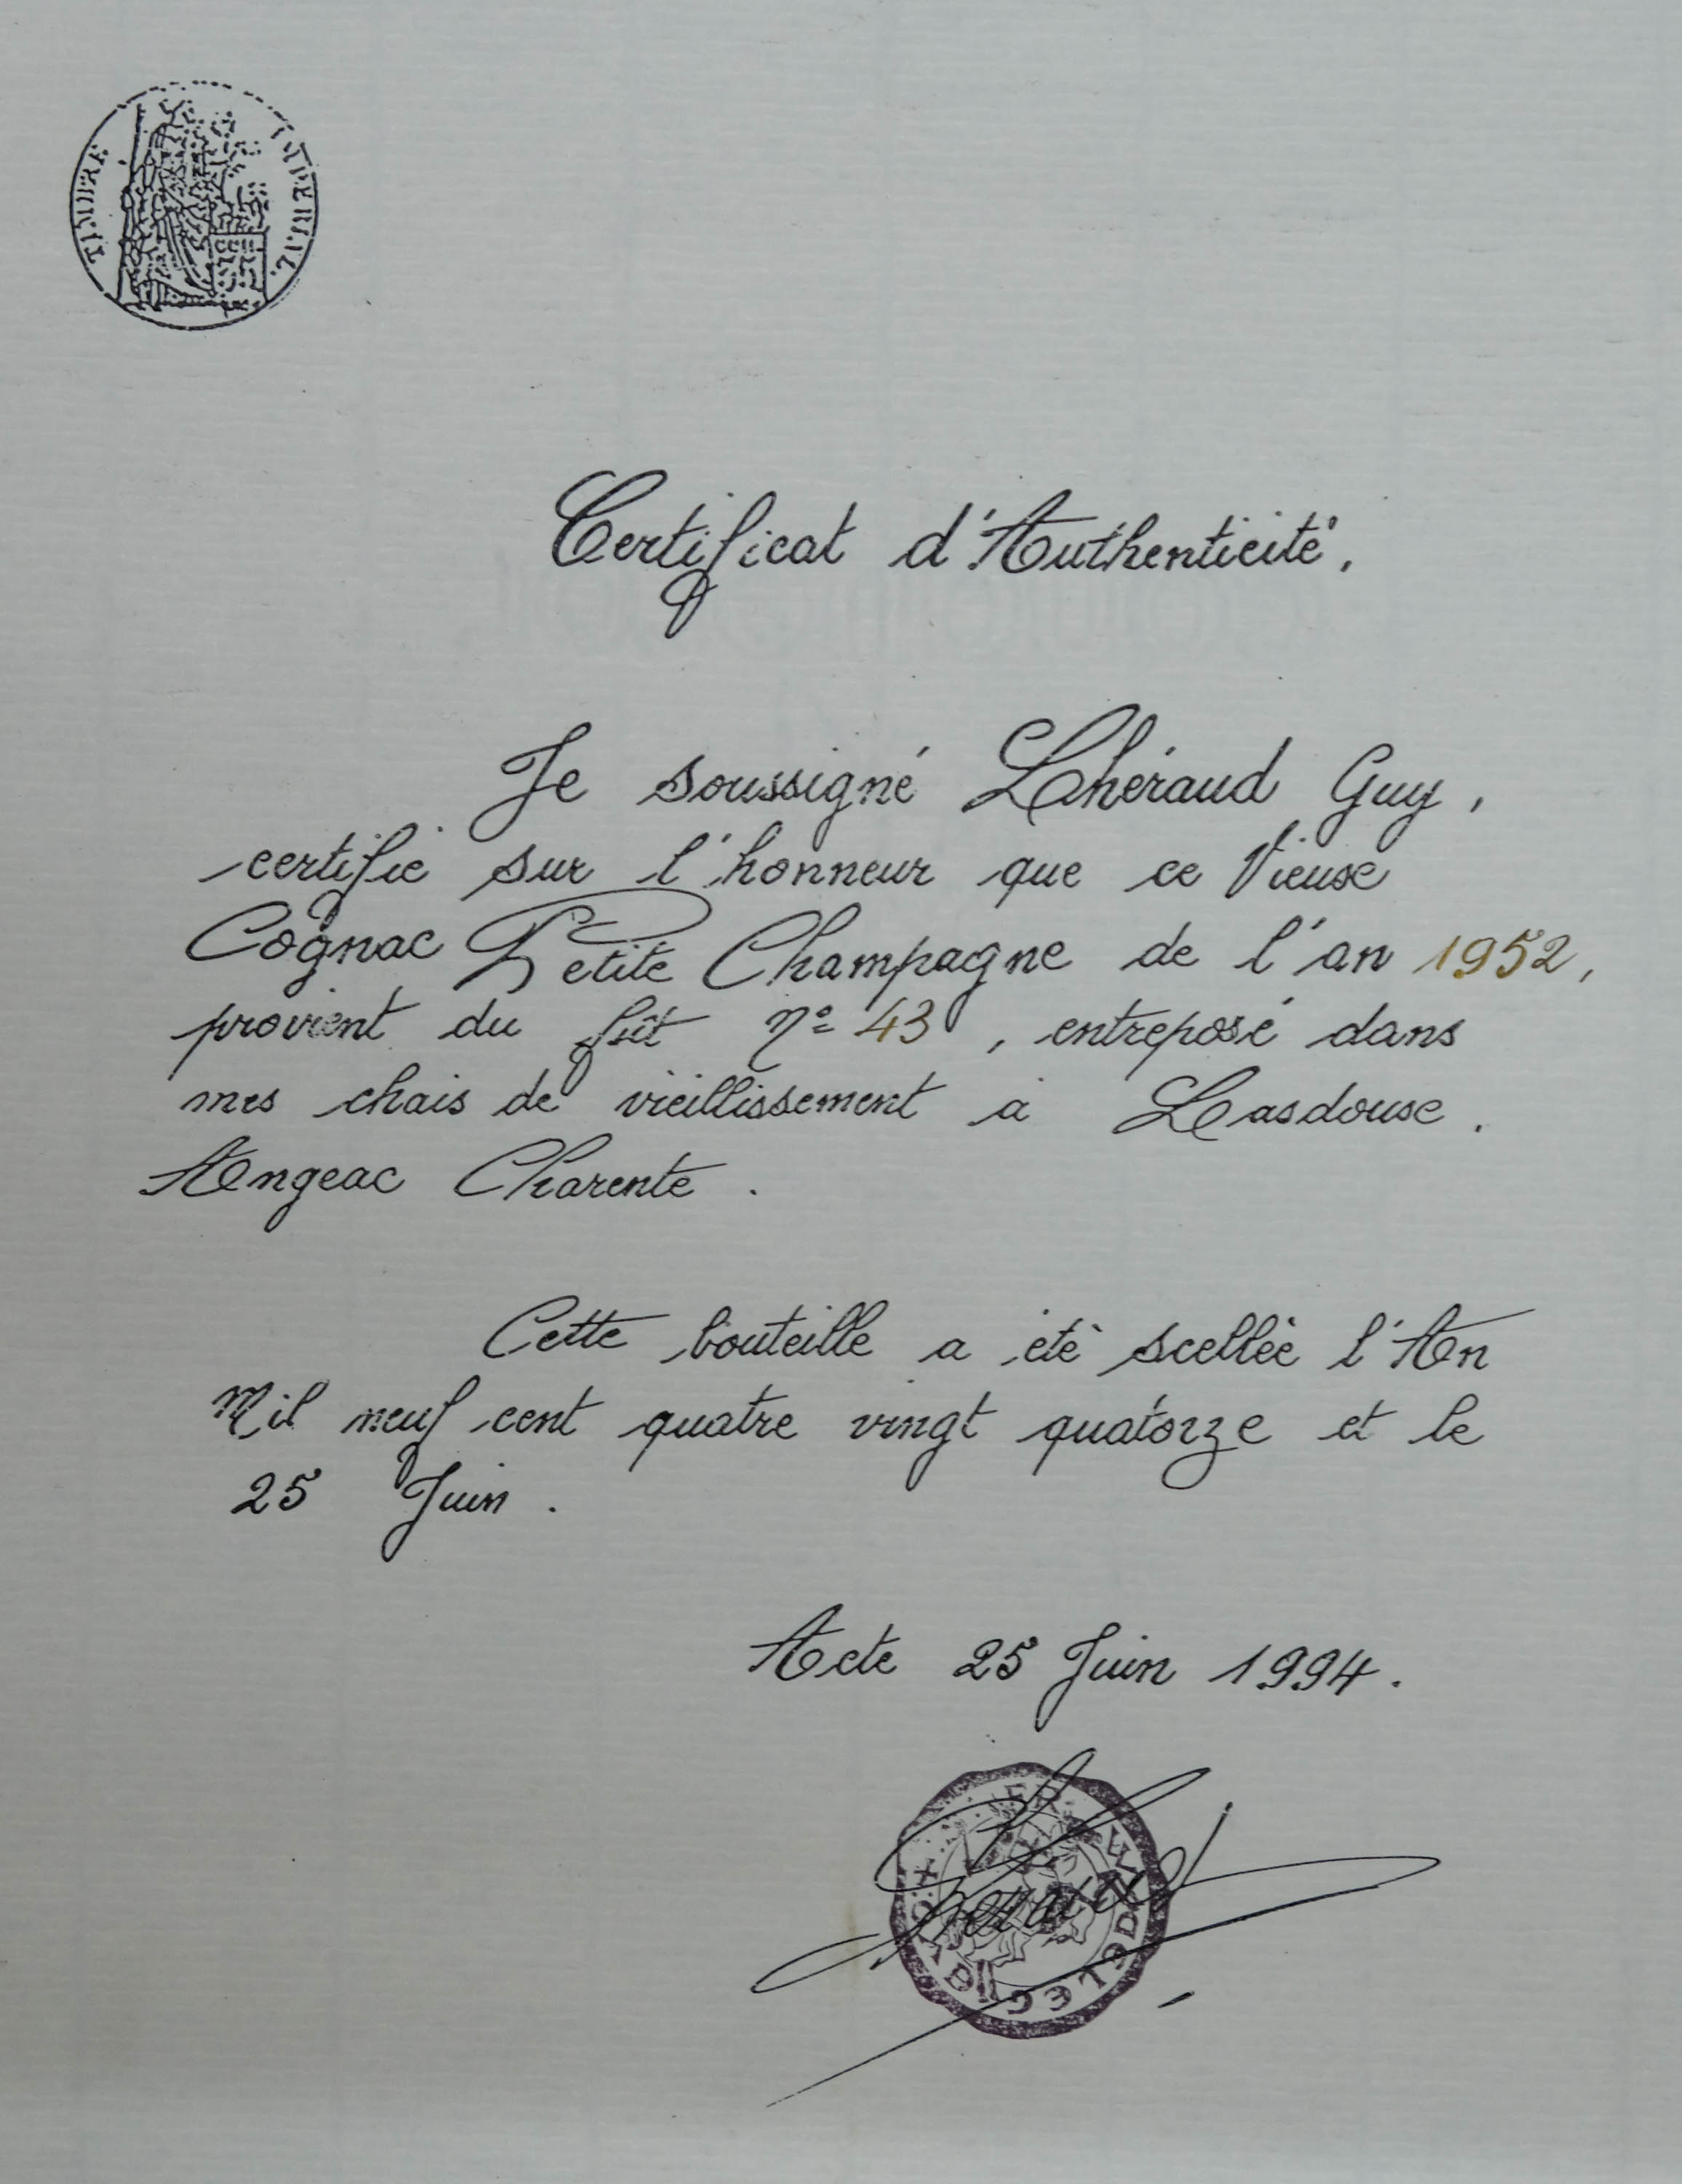 TIMBRE IMPERIAL.
Certificat d'Authenticité.
Je soussigné Lhéraud Guy,
certifie sur l'honneur que ce Vieuse
Cognac Petite Champagne de l'an 1952,
provient du fût nº 43, entreposé dans
mes chais de vieillissement à Lasdouse.
Angeac Charente.
Cette bouteille a été scellée l'An
Mil neuf cent quatre vingt quatorze et le
25 Juin.
Acte 25 Juin 1994.